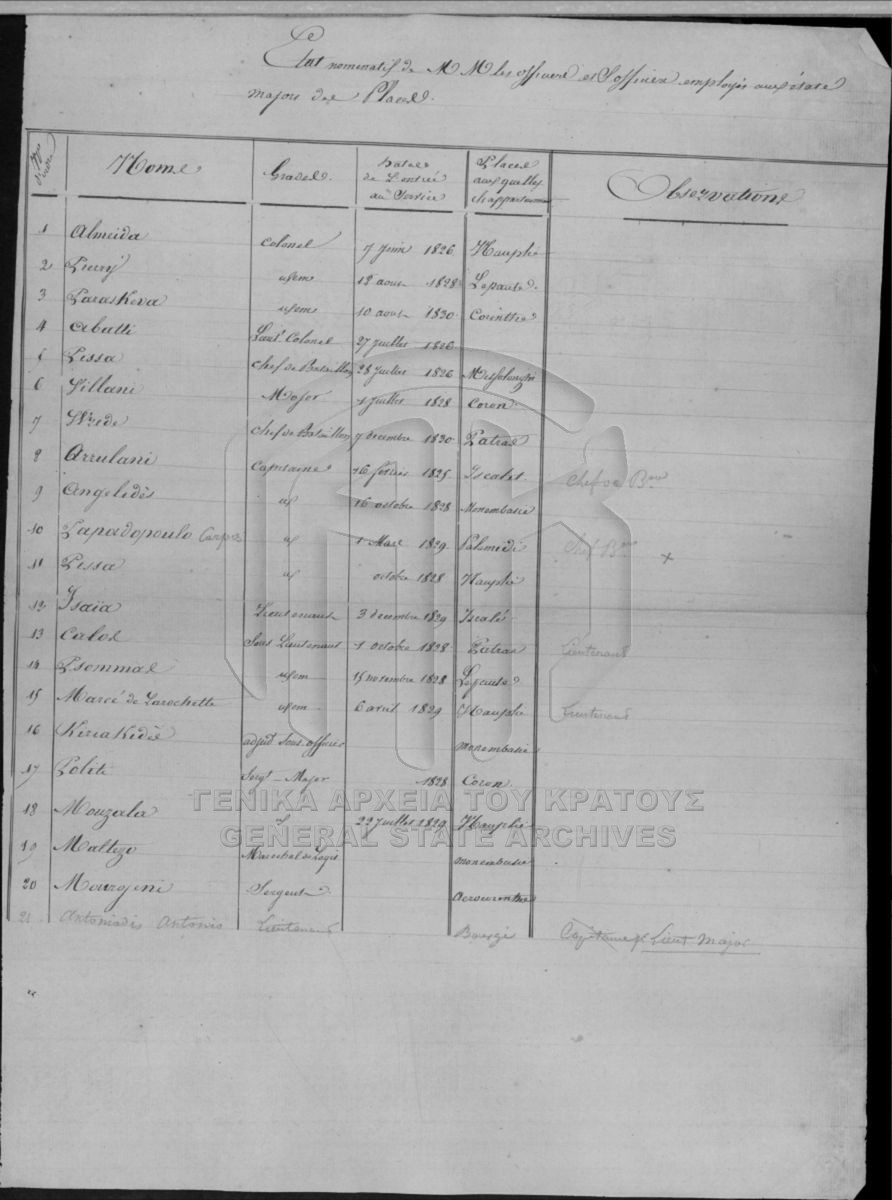 Etat nominatif de MM les officiers et S/officiers employés aux états
majors des Places.
Nos d'ordre | Noms | Grades. | Dates de l'entrée au Service | Places auxquelles ils appartiennent | Observations
1 Almeida colonel 7 juin 1826 Nauplie
2 Pierry idem 12 aout 1828 Lepante
3 Paraskeva idem 10 aout 1830 Corinthe
4 Abatti Lieut. Colonel 27 juillet 1826
5 Pissa chef de Bataillon 28 juillet 1826 Missolonghi
6 Villani Major 1 juillet 1828 Coron
7 chef de Bataillon 7 decembre 1830 Patras
8 Arrulani Capitaine 16 février 1825 Iscalet chef de Bon
9 Angelidès id 16 octobre 1828 Monembasie
10 Papadopoulo id 1 Mars 1829 Palamidi chef Bon x
11 Pissa id octobre 1828 Nauplie
12 Isaïa Lieutenant 3 decembre 1829 Iscalé
13 Calos Sous Lieutenant 1 octobre 1828 Patras Lieutenant
14 Psommas idem 15 novembre 1828 Lepante
15 Marcé de Larochette idem 6 avril 1829 Nauplie Lieutenant
16 Kiriakidès adjudt sous officier monembasie
17 Politi Sergt-Major 1828 Coron
18 Mouzala id 22 juillet 1829 Nauplie
19 Maltezo Marechal de Logis monembasie
20 Mourgini Sergent Acrocorinthe
21 Antoniadis Antonio Lieutenant Bourzi Capitaine Lieut Major
ΓΕΝΙΚΑ ΑΡΧΕΙΑ ΤΟΥ ΚΡΑΤΟΥΣ
GENERAL STATE ARCHIVES